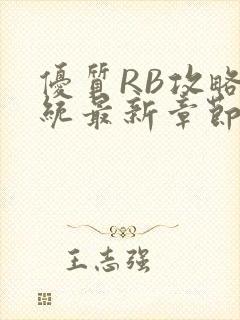 優質RB攻略
統最新章節
王志强